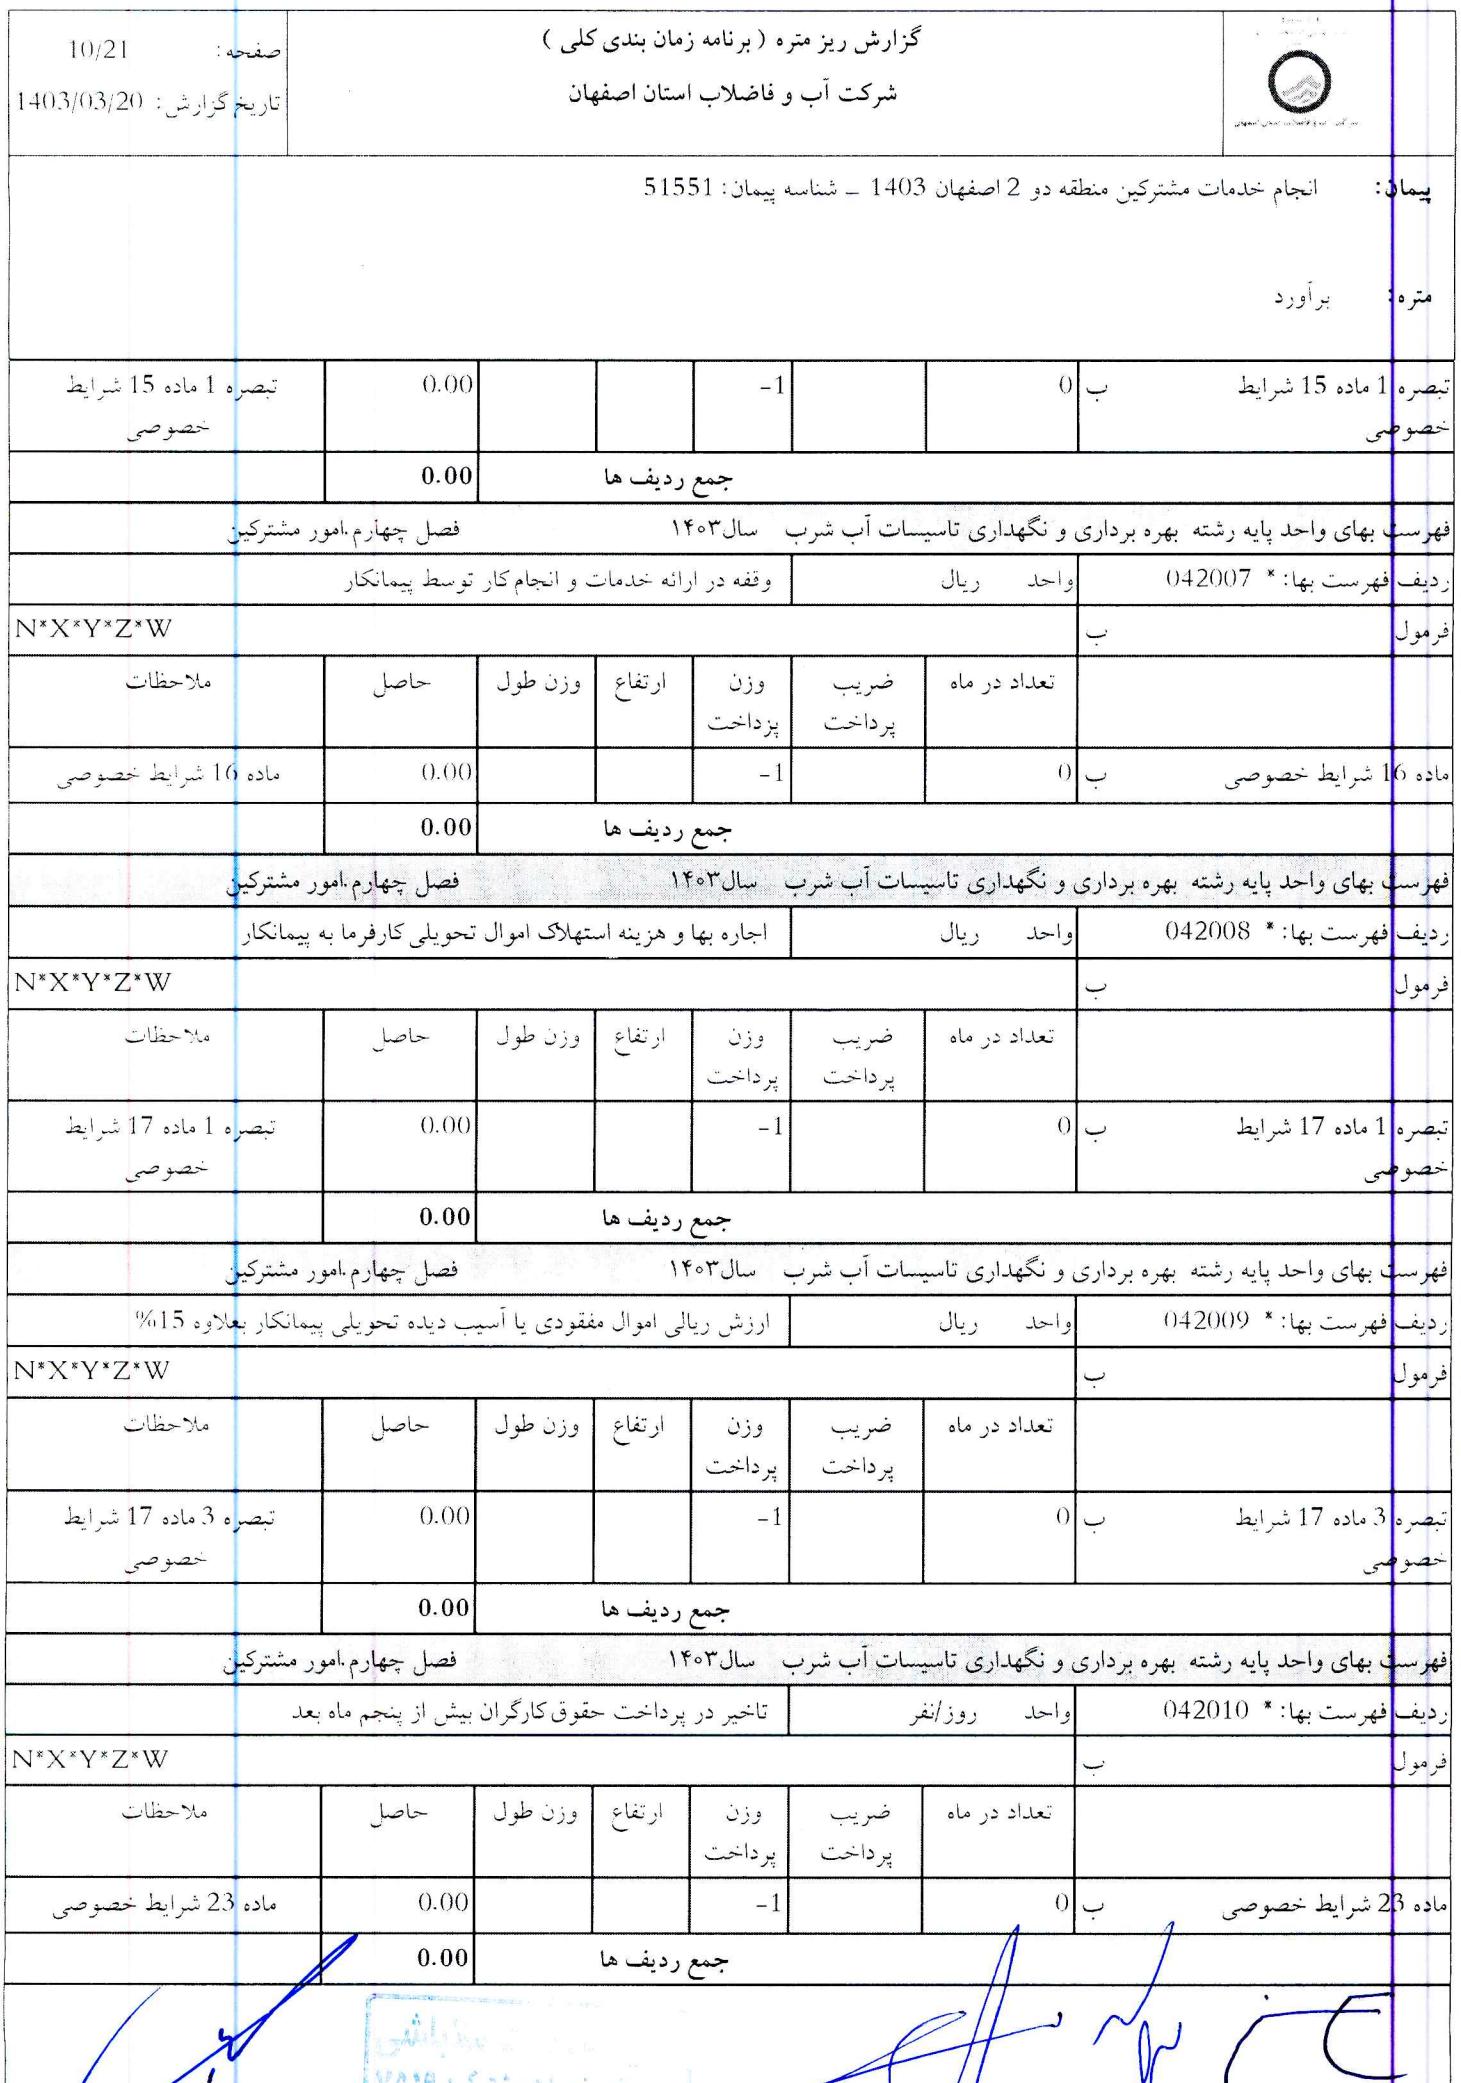 گزارش ریز متره ( برنامه زمان بندی کلی )
شرکت آب و فاضلاب استان اصفهان
صفحه : 10/21
تاریخ گزارش : 1403/03/20
پیمان: انجام خدمات مشترکین منطقه دو 2 اصفهان 1403 – شناسه پیمان: 51551
متره: برآورد
تبصره 1 ماده 15 شرایط خصوصی ب 0 -1 0.00 تبصره 1 ماده 15 شرایط خصوصی
جمع ردیف ها 0.00
فهرست بهای واحد پایه رشته بهره برداری و نگهداری تاسیسات آب شرب سال۱۴۰۳ فصل چهارم.امور مشترکین
ردیف فهرست بها: * 042007 واحد ریال وقفه در ارائه خدمات و انجام کار توسط پیمانکار
فرمول ب N*X*Y*Z*W
تعداد در ماه ضریب پرداخت وزن پرداخت ارتفاع وزن طول حاصل ملاحظات
ماده 16 شرایط خصوصی ب 0 -1 0.00 ماده 16 شرایط خصوصی
جمع ردیف ها 0.00
فهرست بهای واحد پایه رشته بهره برداری و نگهداری تاسیسات آب شرب سال۱۴۰۳ فصل چهارم.امور مشترکین
ردیف فهرست بها: * 042008 واحد ریال اجاره بها و هزینه استهلاک اموال تحویلی کارفرما به پیمانکار
فرمول ب N*X*Y*Z*W
تعداد در ماه ضریب پرداخت وزن پرداخت ارتفاع وزن طول حاصل ملاحظات
تبصره 1 ماده 17 شرایط خصوصی ب 0 -1 0.00 تبصره 1 ماده 17 شرایط خصوصی
جمع ردیف ها 0.00
فهرست بهای واحد پایه رشته بهره برداری و نگهداری تاسیسات آب شرب سال۱۴۰۳ فصل چهارم.امور مشترکین
ردیف فهرست بها: * 042009 واحد ریال ارزش ریالی اموال مفقودی یا آسیب دیده تحویلی پیمانکار بعلاوه 15%
فرمول ب N*X*Y*Z*W
تعداد در ماه ضریب پرداخت وزن پرداخت ارتفاع وزن طول حاصل ملاحظات
تبصره 3 ماده 17 شرایط خصوصی ب 0 -1 0.00 تبصره 3 ماده 17 شرایط خصوصی
جمع ردیف ها 0.00
فهرست بهای واحد پایه رشته بهره برداری و نگهداری تاسیسات آب شرب سال۱۴۰۳ فصل چهارم.امور مشترکین
ردیف فهرست بها: * 042010 واحد روز/نفر تاخیر در پرداخت حقوق کارگران بیش از پنجم ماه بعد
فرمول ب N*X*Y*Z*W
تعداد در ماه ضریب پرداخت وزن پرداخت ارتفاع وزن طول حاصل ملاحظات
ماده 23 شرایط خصوصی ب 0 -1 0.00 ماده 23 شرایط خصوصی
جمع ردیف ها 0.00